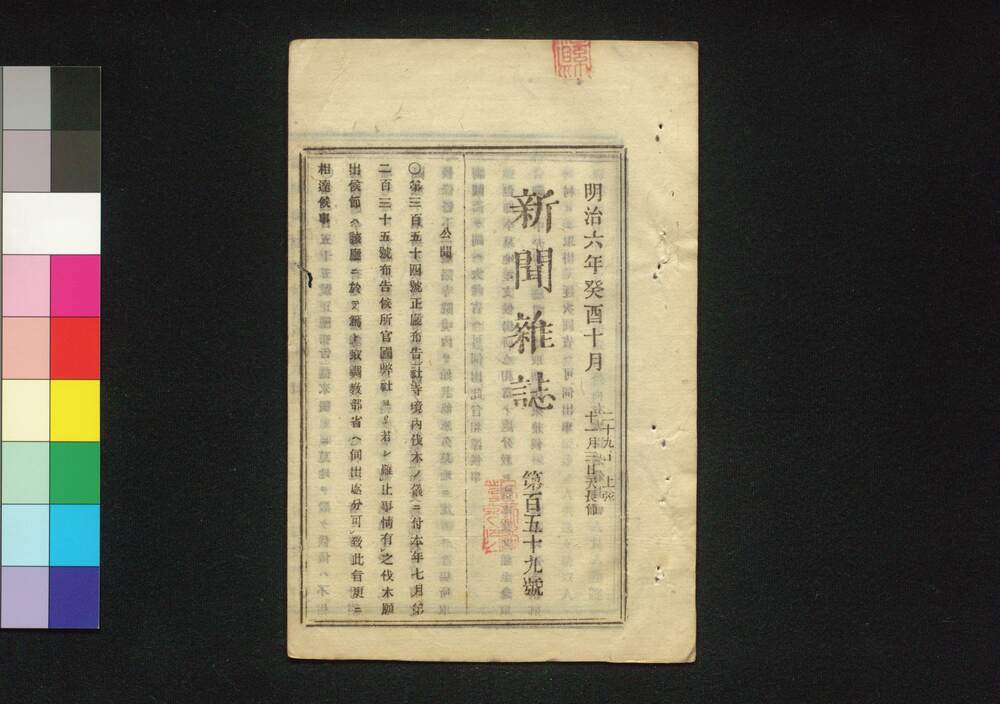 明治六年癸酉十月
二十九日 上梓
十一月三日天長節
新聞雜誌
第百五十九號
公聞
〇第三百五十四號正廳布告社寺境内伐木ノ儀ニ付本年七月第
二百三十五號布告候所官國弊社ニヨリ若シ難止事情有之伐木願
出候節ハ該廳ニ於テ篤ト取調教部省ヘ伺出處分可致此旨更ニ
相達候事